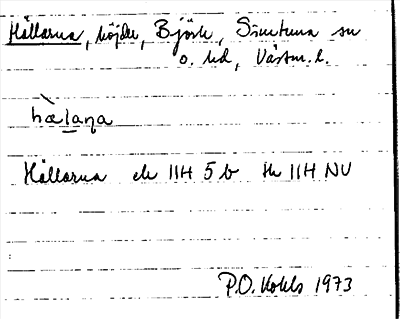 Hållarna, höjder, Björk, Simtuna sn
o. hd, Västm. l.
hæ̀laṇa
Hållarna ek 11H 5 b tk 11H NV
P.O. Kohls 1973